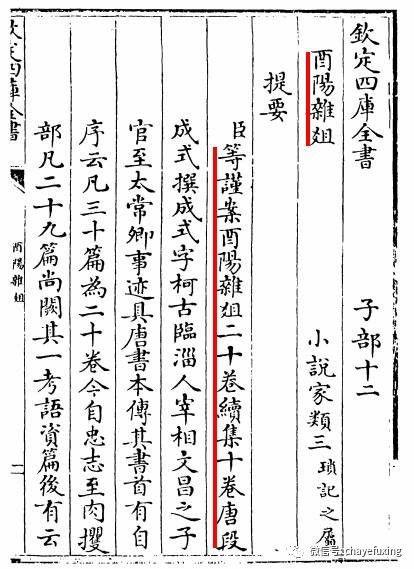 欽定四庫全書 子部十二
酉陽雜俎 小說家類三 瑣記之屬
提要
臣等謹案酉陽雜俎二十卷續集十卷唐段
成式撰成式字柯古臨淄人宰相文昌之子
官至太常卿事迹具唐書本傳其書首有自
序云凡三十篇為二十卷今自忠志至肉攫
部凡二十九篇尚闕其一考語資篇後有云
欽定四庫全書
酉陽雜俎
一
微信号: chayefuxing